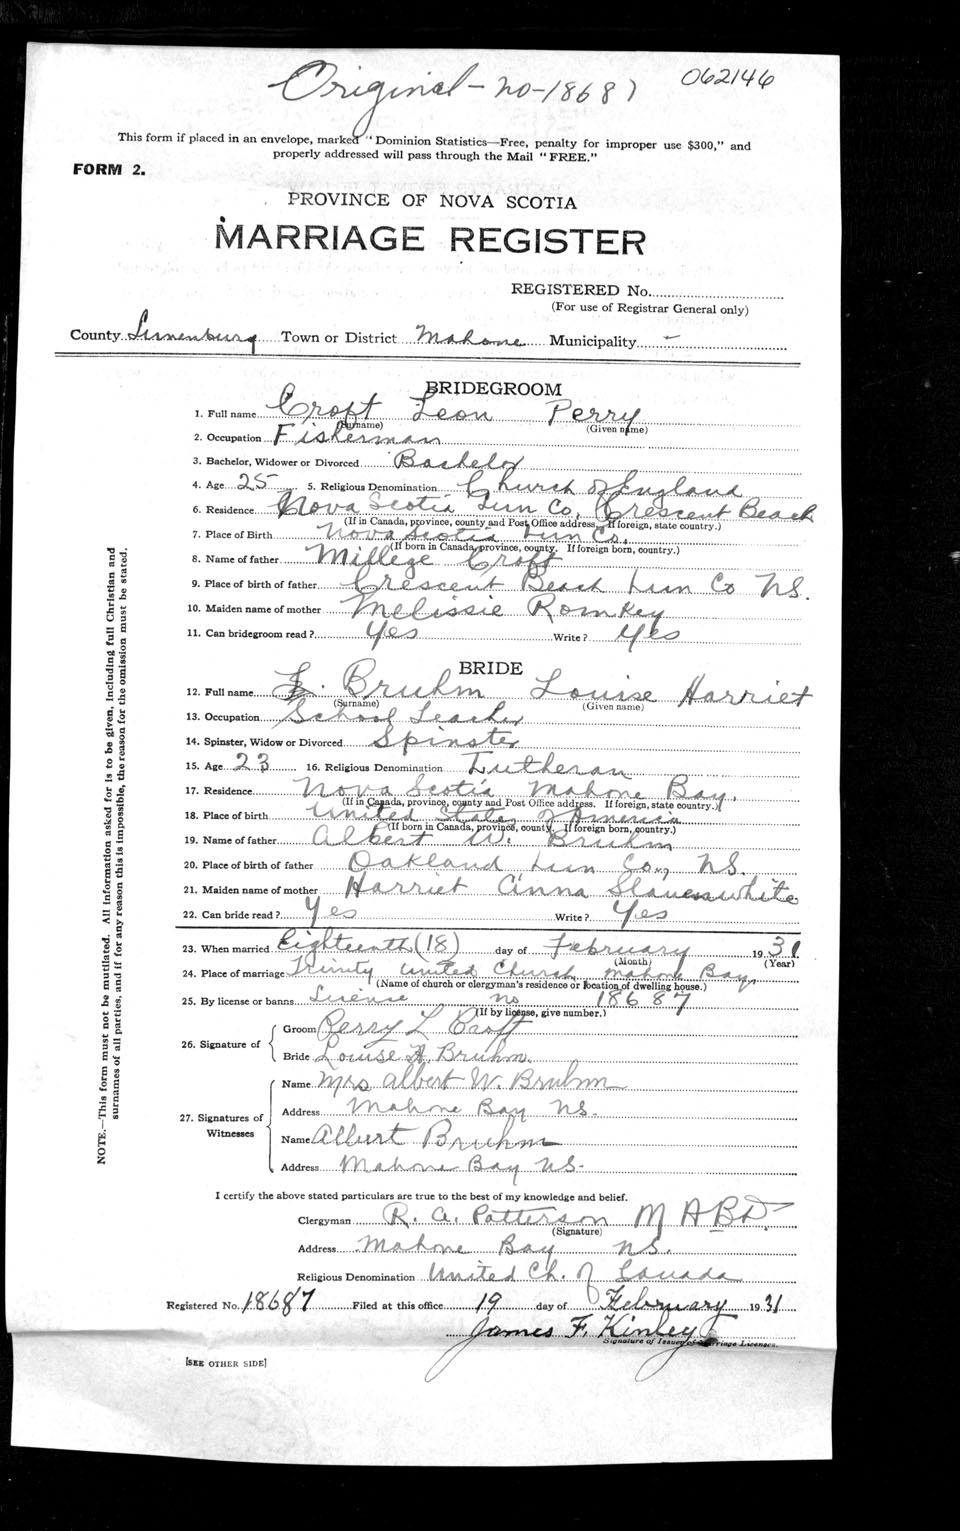 Original - no - 18687
062146
This form if placed in an envelope, marked "Dominion Statistics—Free, penalty for improper use $300," and
properly addressed will pass through the Mail "FREE."
FORM 2.
PROVINCE OF NOVA SCOTIA
MARRIAGE REGISTER
REGISTERED No.
(For use of Registrar General only)
County Lunenburg Town or District Mahone Municipality -
BRIDEGROOM
1. Full name Croft Leon Perry
(Surname) (Given name)
2. Occupation Fisherman
3. Bachelor, Widower or Divorced Bachelor
4. Age 25 5. Religious Denomination Church of England
6. Residence Nova Scotia Lun Co, Crescent Beach
(If in Canada, province, county and Post Office address. If foreign, state country.)
7. Place of Birth Nova Scotia Lun Co,
(If born in Canada, province, county. If foreign born, country.)
8. Name of father Millege Croft
9. Place of birth of father Crescent Beach Lun Co NS.
10. Maiden name of mother Melissie Romkey
11. Can bridegroom read? Yes Write? Yes
BRIDE
12. Full name Bruhm Louise Harriet
(Surname) (Given name)
13. Occupation School Teacher
14. Spinster, Widow or Divorced Spinster
15. Age 23 16. Religious Denomination Lutheran
17. Residence Nova Scotia Mahone Bay,
(If in Canada, province, county and Post Office address. If foreign, state country.)
18. Place of birth United States of America
(If born in Canada, province, county. If foreign born, country.)
19. Name of father Albert W. Bruhm
20. Place of birth of father Oakland Lun Co., NS.
21. Maiden name of mother Harriet Anna Slauenwhite
22. Can bride read? Yes Write? Yes
23. When married Eighteenth (18) day of February 1931
(Month) (Year)
24. Place of marriage Trinity United Church Mahone Bay,
(Name of church or clergyman's residence or location of dwelling house.)
25. By license or banns License no 18687
(If by license, give number.)
26. Signature of
Groom Perry L Croft
Bride Louise H. Bruhm.
27. Signatures of Witnesses
Name Mrs Albert W. Bruhm
Address Mahone Bay NS.
Name Albert Bruhm
Address Mahone Bay NS-
I certify the above stated particulars are true to the best of my knowledge and belief.
Clergyman R. A. Patterson M A B D
(Signature)
Address Mahone Bay NS.
Religious Denomination United Ch. of Canada
Registered No. 18687 Filed at this office 19 day of February 1931
James F. Kinley
Signature of Issuer of Marriage Licenses.
[SEE OTHER SIDE]
NOTE.—This form must not be mutilated. All information asked for is to be given, including full Christian and
surnames of all parties, and if for any reason this is impossible, the reason for the omission must be stated.